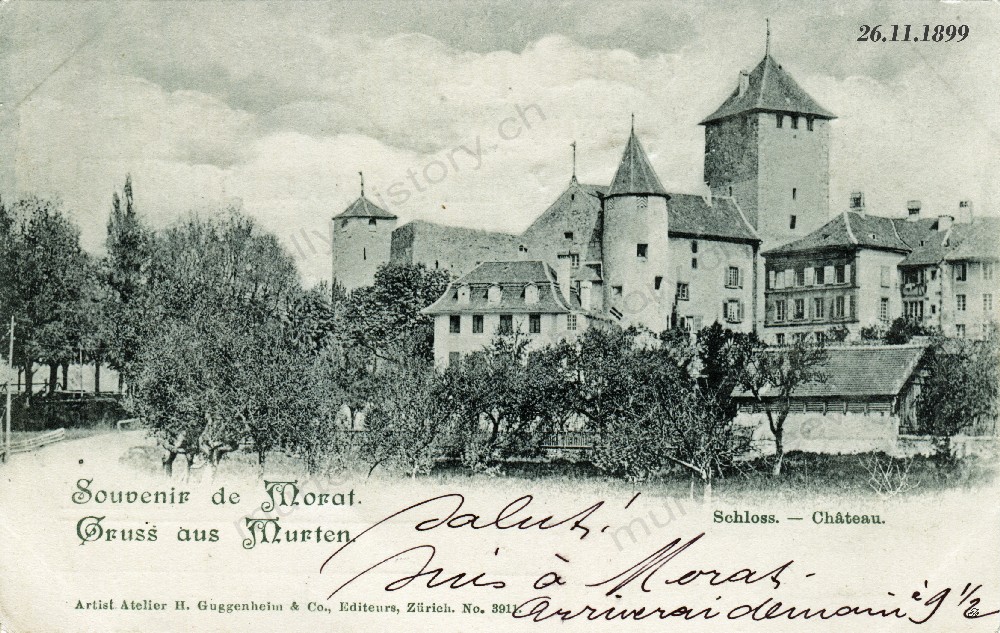 26.11.1899
Souvenir de Morat.
Gruss aus Murten.
Schloss. — Château.
Salut!
Suis à Morat.
Arriverai demain à 9 1/2
Artist Atelier H. Guggenheim & Co., Editeurs, Zürich. No. 3911.